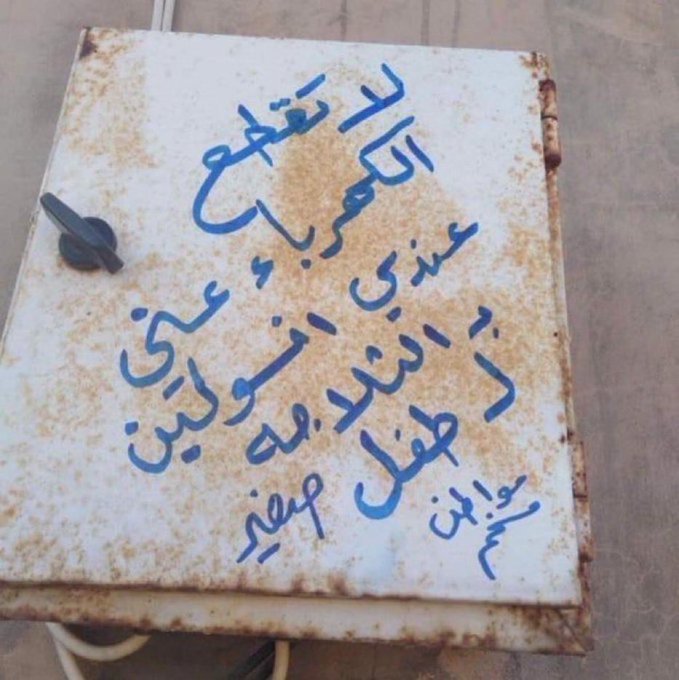 لا تقطع
الكهرباء عني
عندي انسولين
بـ الثلاجه
لـ طفل صغير
مواطن